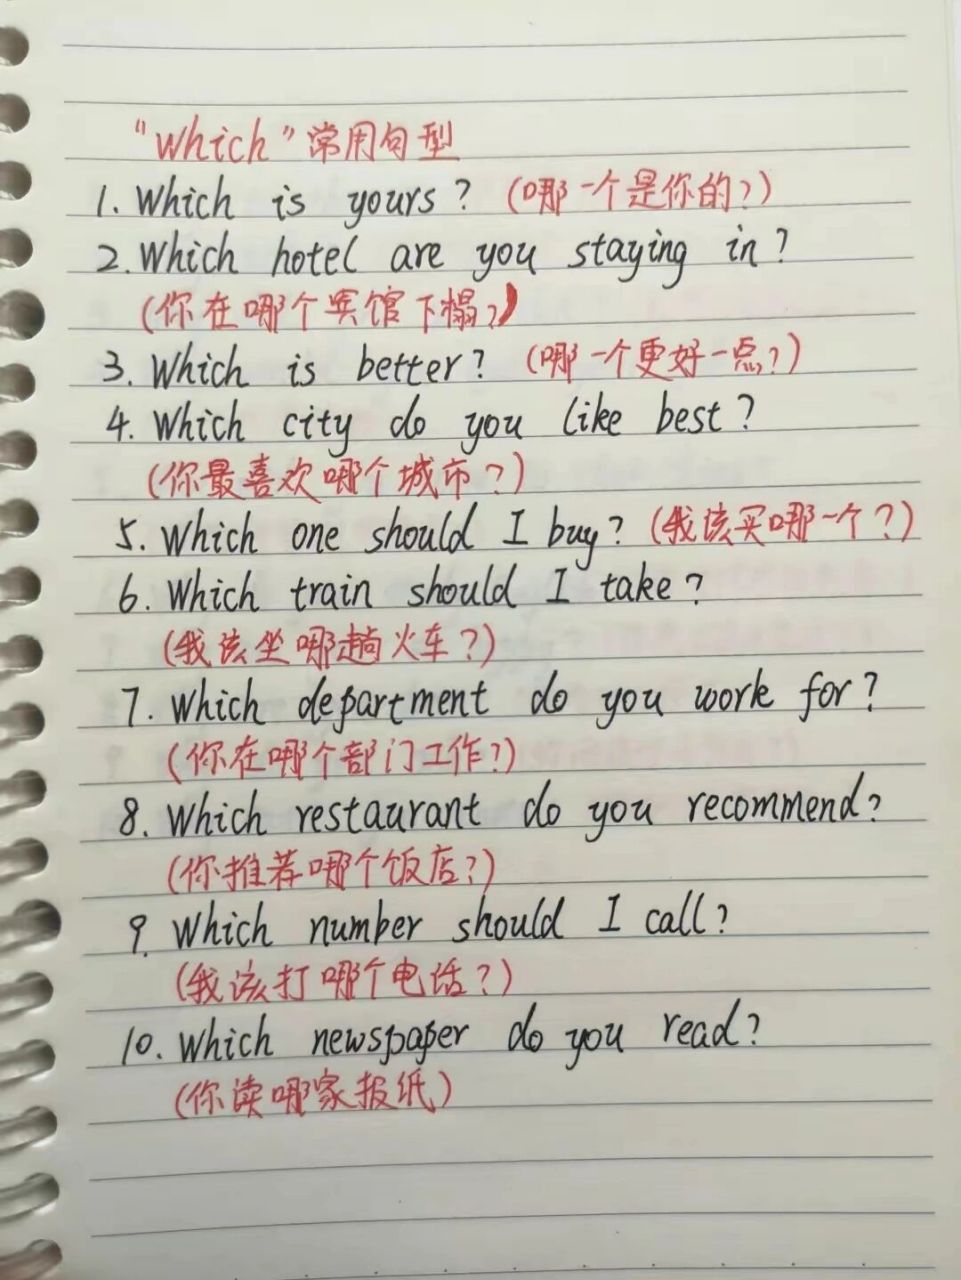 "Which"常用句型
1. Which is yours? (哪一个是你的?)
2. Which hotel are you staying in?
(你在哪个宾馆下榻?)
3. Which is better? (哪一个更好一点?)
4. Which city do you like best?
(你最喜欢哪个城市?)
5. Which one should I buy? (我该买哪一个?)
6. Which train should I take?
(我该坐哪趟火车?)
7. Which department do you work for?
(你在哪个部门工作?)
8. Which restaurant do you recommend?
(你推荐哪个饭店?)
9. Which number should I call?
(我该打哪个电话?)
10. Which newspaper do you read?
(你读哪家报纸)